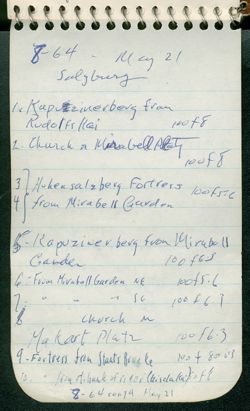 8-64 - May 21
Salzburg
1. Kapuzinerberg from
Rudolfskai 100 f8
2. Church on Mirabell Platz
100 f8
3 Hohensalzberg Fortress
4 from Mirabell Garden 100 f5.6
5 - Kapuzinerberg from Mirabell
Garden 100 f6.3
6 - From Mirabell Garden NE 100 f5.6
7 - " " " SE 100 f6.3
8 Church on
Makart Platz 100 f6.3
9 - Fortress from Staats 100 f 8
10. from
8-64 May 21